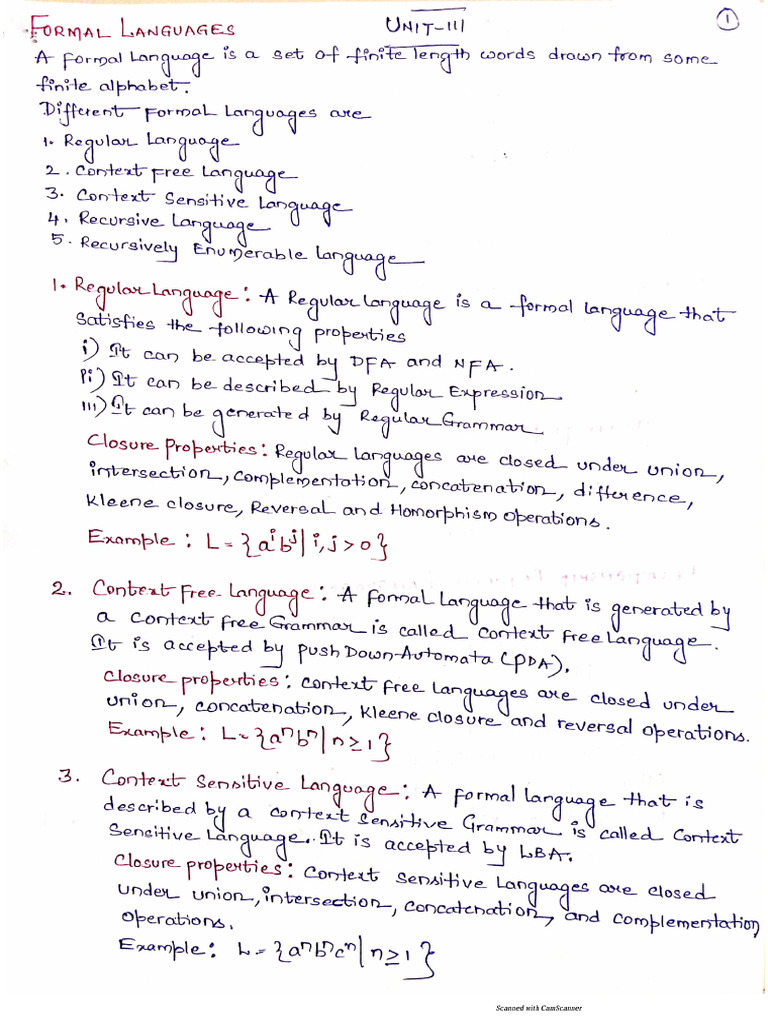 FORMAL LANGUAGES UNIT-III 1
A Formal Language is a set of finite length words drawn from some
finite alphabet.
Different Formal Languages are
1. Regular Language
2. Context Free Language
3. Context Sensitive Language
4. Recursive Language
5. Recursively Enumerable Language
1. Regular Language: A Regular Language is a formal language that
satisfies the following properties
i) It can be accepted by DFA and NFA.
ii) It can be described by Regular Expression.
III) It can be generated by Regular Grammar.
Closure Properties: Regular Languages are closed under union,
intersection, complementation, concatenation, difference,
Kleene closure, Reversal and Homorphism operations.
Example: L = {aⁱbʲ | i, j > 0}
2. Context Free Language: A Formal Language that is generated by
a context free Grammar is called Context Free Language.
It is accepted by push Down-Automata (PDA).
Closure properties: Context free Languages are closed under
union, concatenation, Kleene closure and reversal operations.
Example: L = {aⁿbⁿ | n ≥ 1}
3. Context Sensitive Language: A formal language that is
described by a context sensitive Grammar is called Context
Sensitive Language. It is accepted by LBA.
Closure properties: Context Sensitive Languages are closed
under union, intersection, concatenation, and complementation
operations.
Example: L = {aⁿbⁿcⁿ | n ≥ 1}
Scanned with CamScanner